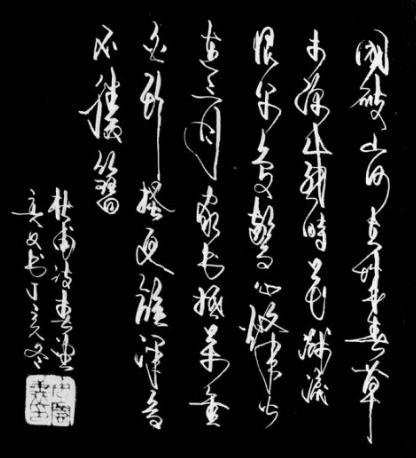 國破山河在城春草
木深感時花濺淚
恨別鳥驚心烽火
連三月家書抵萬金
白頭搔更短渾欲
不勝簪
杜甫詩春望
書丁亥冬